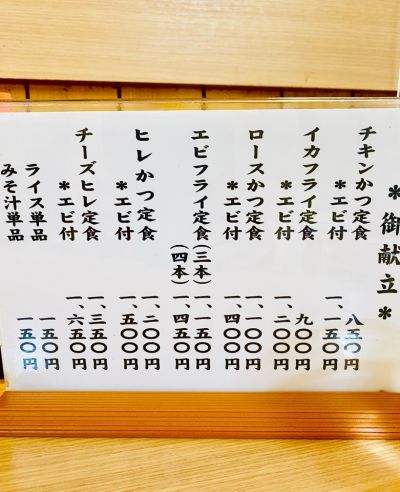 ＊御献立＊
チキンかつ定食 八五〇円
＊エビ付 一、一五〇円
イカフライ定食 九〇〇円
＊エビ付 一、二〇〇円
ロースかつ定食 一、一〇〇円
＊エビ付 一、四〇〇円
エビフライ定食(三本) 一、一五〇円
(四本) 一、四五〇円
ヒレかつ定食 一、二〇〇円
＊エビ付 一、五〇〇円
チーズヒレ定食 一、三五〇円
＊エビ付 一、六五〇円
ライス単品 一五〇円
みそ汁単品 一五〇円